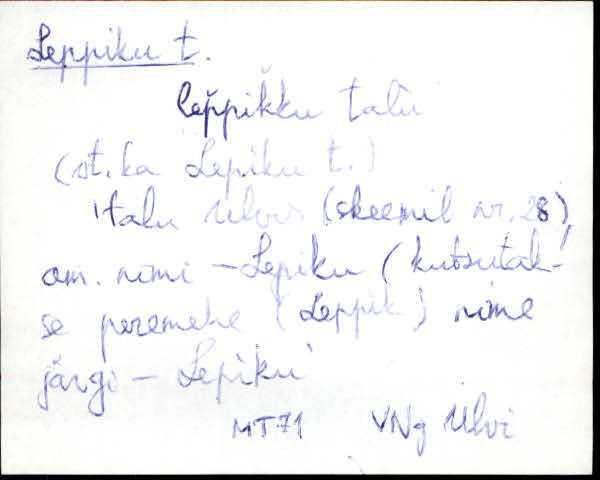 Leppiku t.
lep̆pik̆ku talu
(vt. ka Lepiku t.)
'talu Ulvis (skeemil nr. 28),
am. nimi – Lepiku (kutsutak-
se peremehe (Leppik) nime
järgi – Lepiku'
MT71 VNg Ulvi